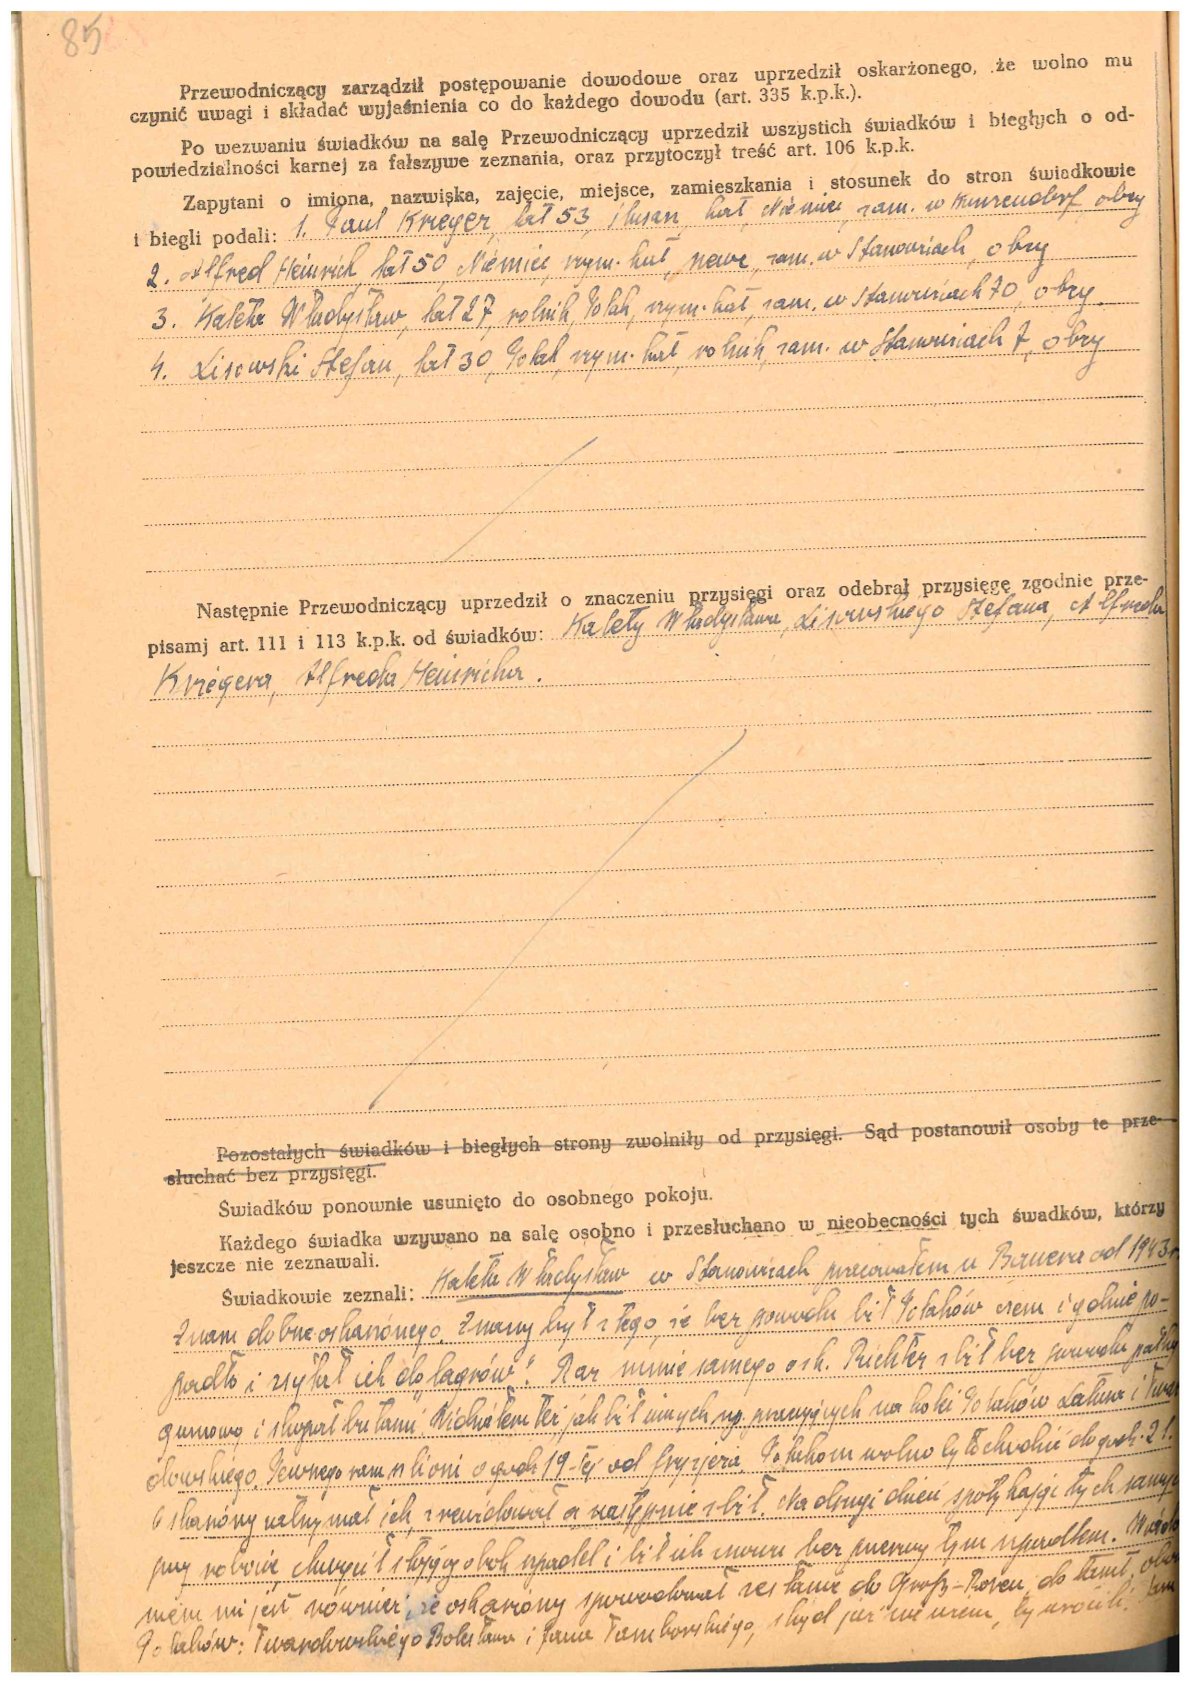 85
Przewodniczący zarządził postępowanie dowodowe oraz uprzedził oskarżonego, że wolno mu
czynić uwagi i składać wyjaśnienia co do każdego dowodu (art. 335 k.p.k.).
Po wezwaniu świadków na salę Przewodniczący uprzedził wszystich świadków i biegłych o od-
powiedzialności karnej za fałszywe zeznania, oraz przytoczył treść art. 106 k.p.k.
Zapytani o imiona, nazwiska, zajęcie, miejsce, zamieszkania i stosunek do stron świadkowie
i biegli podali: 1. Paul Krieger, lat 53, ślusarz, kat, Niemiec, zam. w Kunzendorf, obcy
2. Alfred Heinrich, lat 50, Niemiec, rzym. kat, zam. w Stanowicach, obcy
3. Kaleta Władysław, lat 27, rolnik, Polak, rzym. kat, zam. w Stanowicach 70, obcy.
4. Lisowski Stefan, lat 30, Polak, rzym. kat, rolnik, zam. w Stanowicach 7, obcy
Następnie Przewodniczący uprzedził o znaczeniu przysięgi oraz odebrał przysięgę zgodnie prze-
pisamj art. 111 i 113 k.p.k. od świadków: Kalety Władysława, Lisowskiego Stefana, Alfreda
Kriegera, Alfreda Heinricha.
Pozostałych świadków i biegłych strony zwolniły od przysięgi. Sąd postanowił osoby te prze-
słuchać bez przysięgi.
Świadków ponownie usunięto do osobnego pokoju.
Każdego świadka wzywano na salę osobno i przesłuchano w nieobecności tych śwadków, którzy
jeszcze nie zeznawali.
Świadkowie zeznali: Kaleta Władysław w Stanowicach pracowałem u Bauera od 1943 r.
Znam dobrze oskarżonego. Znany był z tego, że bez powodu bił Polaków czem i gdzie po-
padło i zsyłał ich do „łagrów". Raz mnie samego osk. Richter zbił bez powodu pałką
gumową i skopał butami. Widziałem też, jak bił innych np. pracujących na kolei Polaków i Twar-
dowskiego. Pewnego razu szli oni o godz 19-tej od fryzjera. Polakom wolno było chodzić do godz. 21.
Oskarżony zatrzymał ich, zrewidował a następnie zbił. Na drugi dzień spotykając tych samych
przy robocie, chwycił stojący obok szpadel i bił ich znowu bez przerwy tym szpadlem. Wiado-
mem mi jest również, że oskarżony spowodował zesłanie do Groß-Rosen, do tamt.
Polaków: Twardowskiego Bolesława i Jana Tamborskiego, skąd już nie wiem, by wrócili.